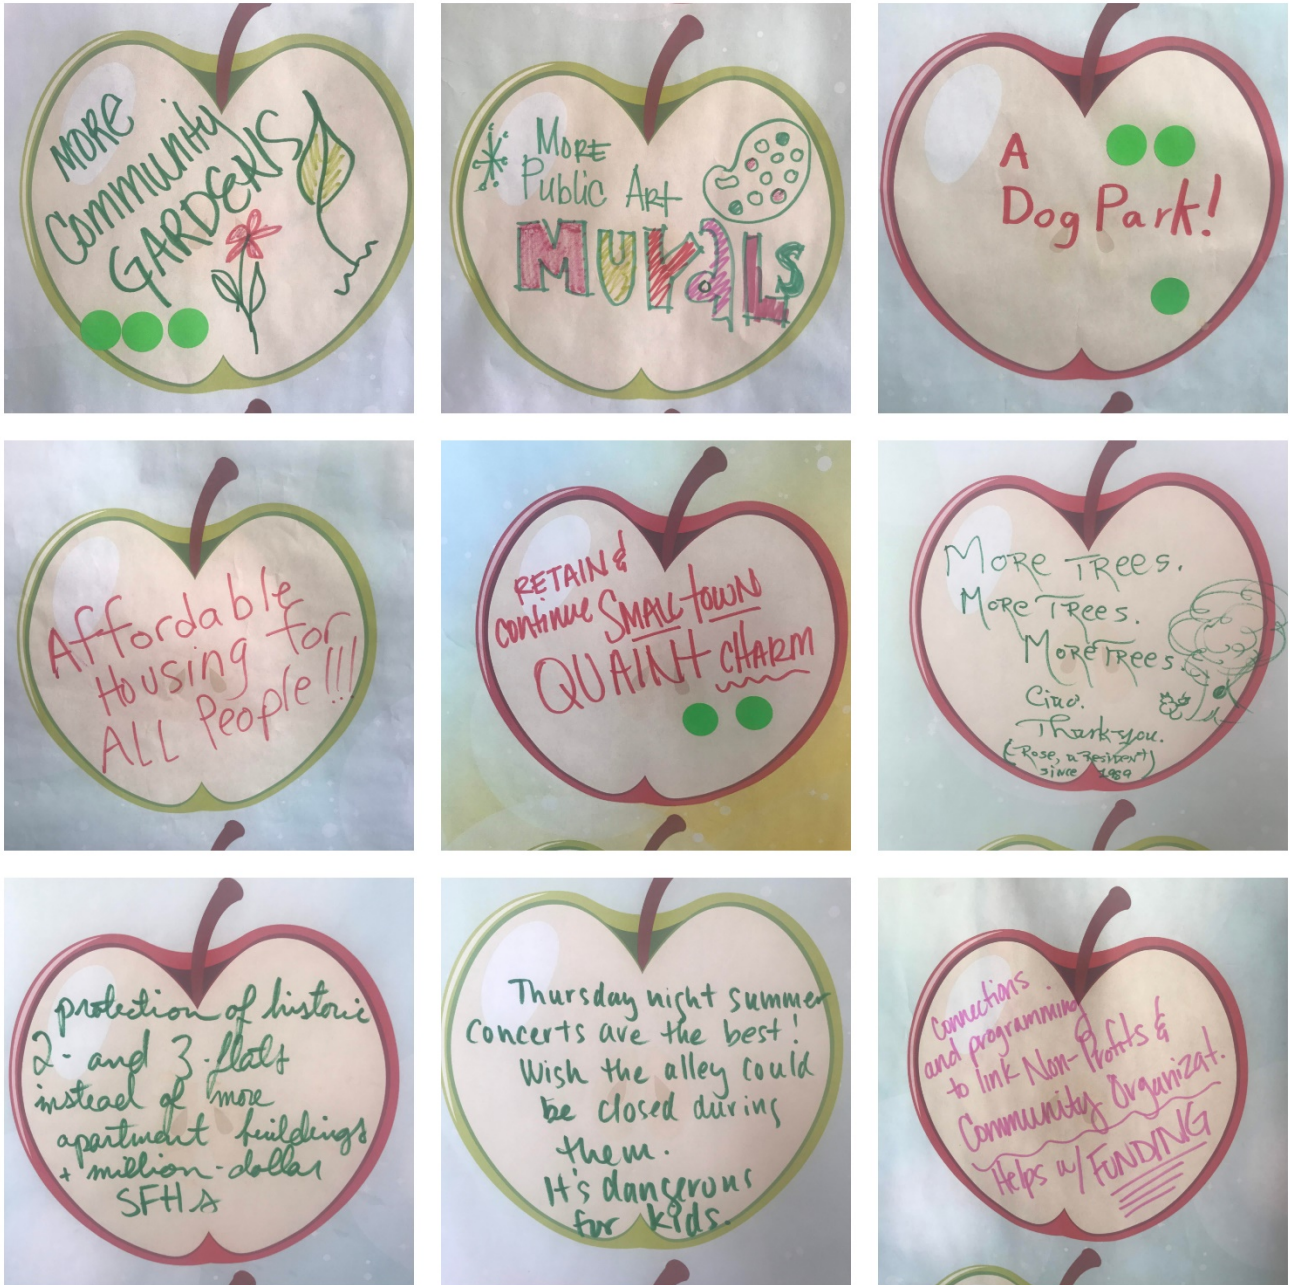 MORE
Community
GARDENS
More
Public Art
Murals
A
Dog Park!
Affordable
Housing for
ALL People!!!
RETAIN &
continue SMALL TOWN
QUAINT CHARM
More Trees.
More Trees.
More Trees.
Ciao.
Thank you.
(-Rose, a Resident)
since 1989
protection of historic
2- and 3-flats
instead of more
apartment buildings
+ million-dollar
SFHs
Thursday night summer
concerts are the best!
Wish the alley could
be closed during
them.
It's dangerous
for kids.
connections
and programming
to link Non-Profits &
Community Organizat.
Helps w/ FUNDING